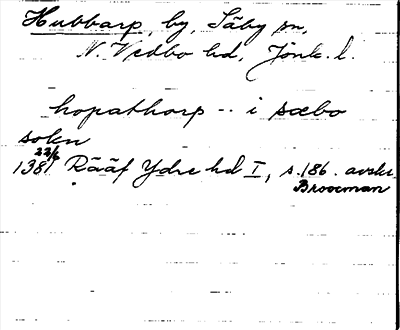 Hubbarp, by, Säby sn,
N. Vedbo hd, Jönk. l.
hopathorp -- i sæbo
sokn
22/6
1381 Rääf Ydre hd I, s. 186. avskr.
Brocman